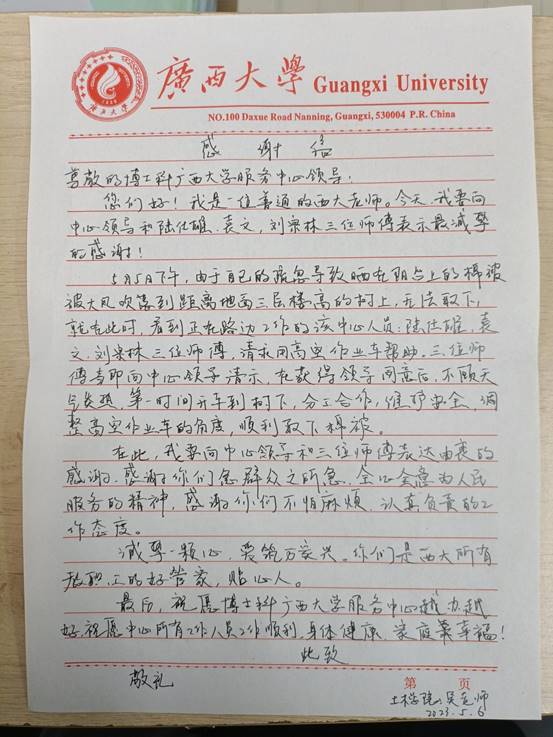 廣西大學 Guangxi University
NO.100 Daxue Road Nanning, Guangxi, 530004 P.R. China
感 谢 信
尊敬的博士科广西大学服务中心领导：
您们好！我是一位普通的西大老师。今天，我要向
中心领导和陆仕雄、袁文、刘荣林三位师傅表示最诚挚
的感谢！
5月5日下午，由于自己的疏忽导致晒在阳台上的棉被
被大风吹落到距离地面三层楼高的树上，无法取下，
就在此时，看到正在路边工作的该中心人员：陆仕雄、袁
文、刘荣林三位师傅，请求用高空作业车帮助。三位师
傅立即向中心领导请示，在获得领导同意后，不顾天
气炎热，第一时间开车到树下，分工合作，维护安全，调
整高空作业车的角度，顺利取下棉被。
在此，我要向中心领导和三位师傅表达由衷的
感谢。感谢你们急群众之所急，全心全意为人民
服务的精神，感谢你们不怕麻烦，认真负责的工
作态度。
诚挚一颗心，爱筑万家兴。你们是西大所有
教职工的好管家，贴心人。
最后，祝愿博士科广西大学服务中心越办越
好，祝愿中心所有工作人员工作顺利，身体健康，家庭幸福！
此致
敬礼
第 页
土木学院：吴老师
2023.5.6